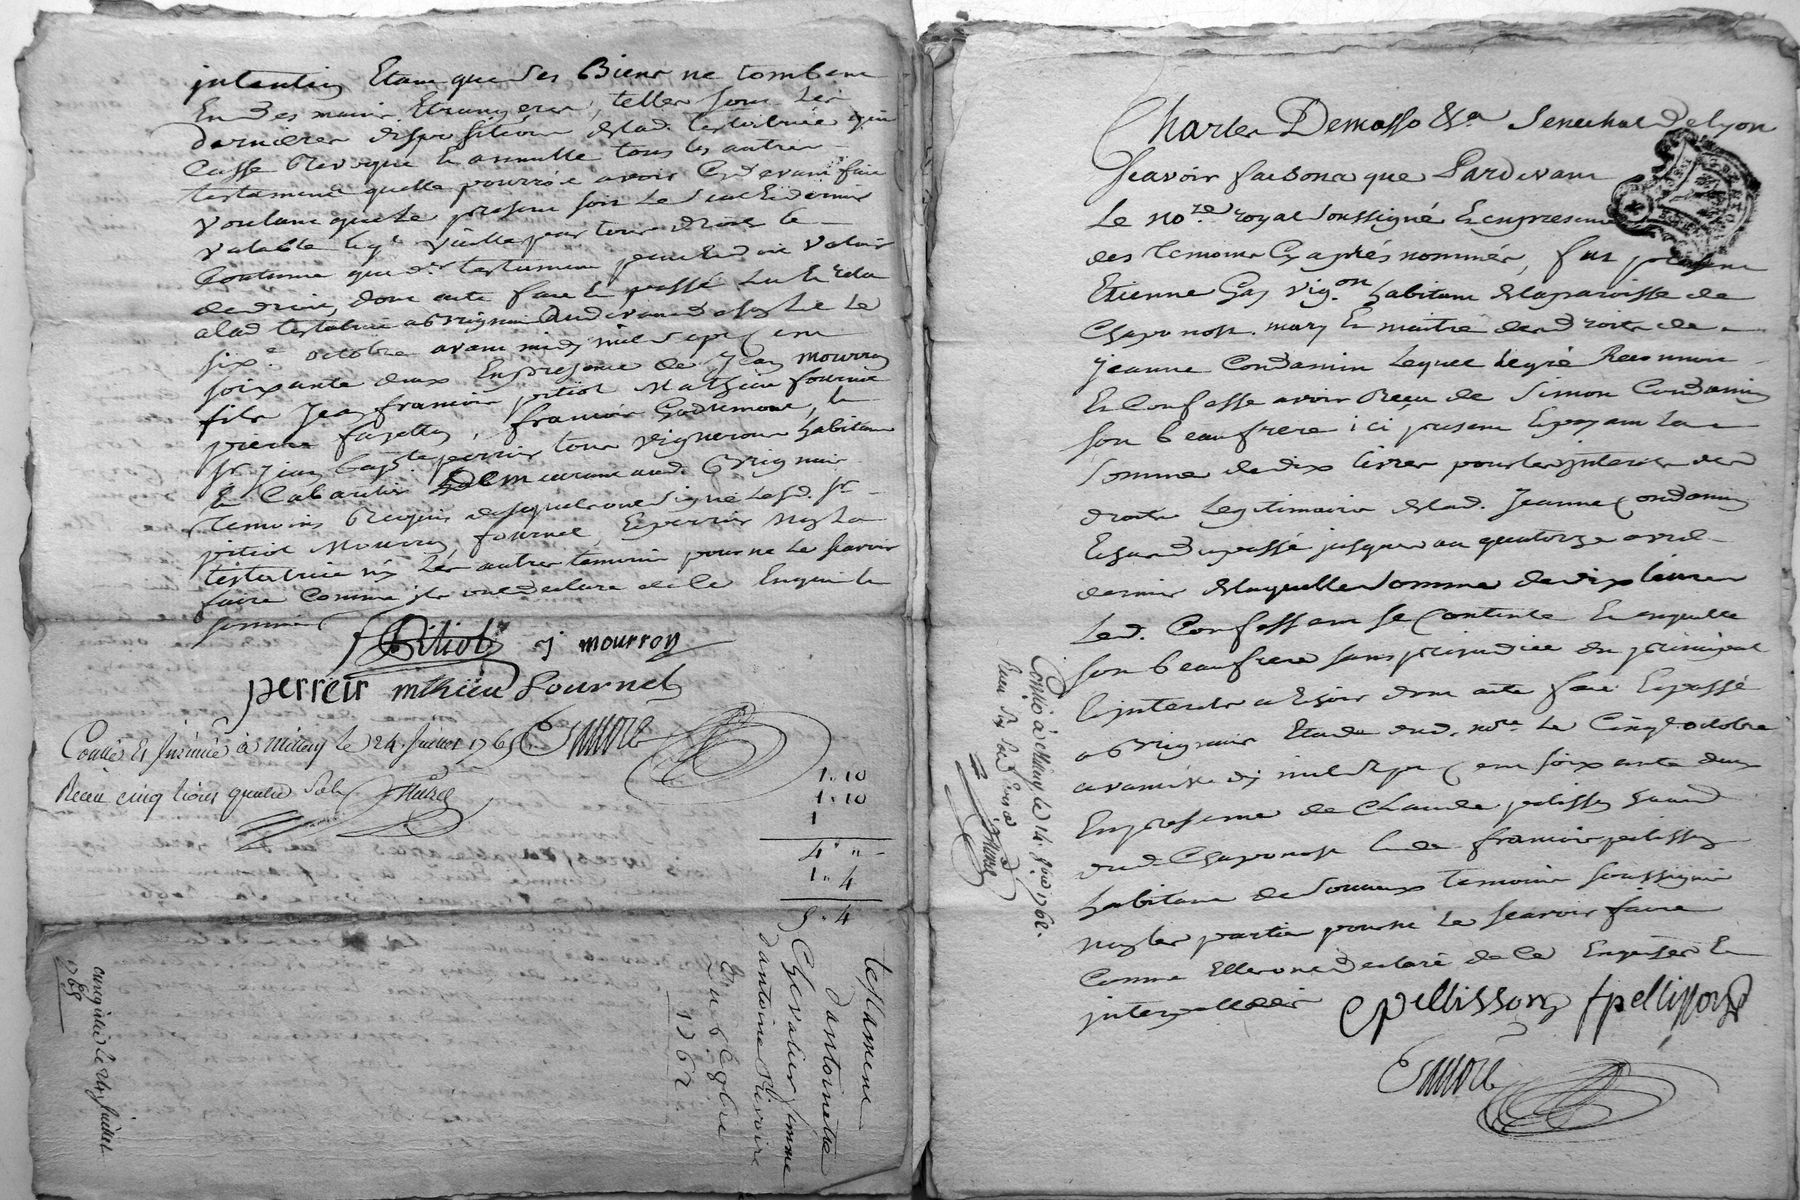 intention Etant que ses Biens ne tombent
En des mains Etrangeres, telles sont les
dernieres dispositions de lad. testatrice qui
Casse Revoque Et annulle tous les autres
testaments quelle pourroit avoir Cy devant fait
voulant que le present soit le seul Et dernier
valable Et qu'il vaille par tous droits Et
Coutume que d.r testament peut Et doit valoir
de droit, dont acte fait Et passé lu Et relu
alad. testatrice a Brignais le
six.e octobre avant midy mil sept cent
soixante deux En presence de Jean mourron
fils Jean francois pitiot Mathieu fournel
pierre fayetton, francois, Et
Sr Jean Bapt.te perrier tous vignerons habitans
Et Cabaretier Demeurant aud. Brignais
temoins Requis desquels ont signé lesd. Sr
pitiot Mourron, fournel, Et perrier non la
testatrice ny les autres temoins pour ne le scavoir
faire Comme ils ont declaré de ce Enquis Et
sommés
f Pitiot j mourron
perreir mthieu Fournel
Conllé Et Insinué à Millery le 24. Juillet 1765
Receu cinq livres quatre sols
1.. 10
1.. 10
1
4 " "
1.. 4
5.. 4
testament
dantoinette
Chevalier femme
dantoine Privoire
Du 6 8bre
1762
enregistré le 24 Juillet
1765
Charles Demasso &.a Senechal de Lyon
Scavoir faisons que Pardevant
Le no.re royal soussigné En presence
des temoins Cy aprés nommés, fut present
Etienne Gay vig.on habitant de la paroisse de
Chaponost mary Et maitre des droits de
jeanne Condamin Lequel de gré Reconnoit
Et Confesse avoir Reçu de Simon Condamin
son beaufrere ici present Et payant la
Somme de dix livres pour les interets des
droits Legitimaires de lad. Jeanne Condamin
Echus du passé jusques au quatorze avril
dernier de laquelle Somme de dix livres
Led. Confessant se Contente Et en quitte
son beaufrere sans prejudice du principal
Et interets a Echoir dont acte fait Et passé
a Brignais Etude dud. no.re Le Cinq.e octobre
avant midy mil sept cent soixante deux
En presence de Claude pelisson
dud. Chaponost Et de francois pelisson
habitant de Soucieux temoins soussignés
non les parties pour ne le scavoir faire
Comme Elles ont declaré de Ce Enquises Et
interpellées
C pellisson f pellisson
Conlé à Millery le 14. 8bre 1762.
Receu six sols